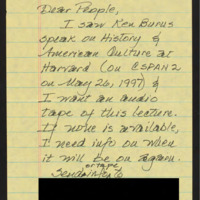 Dear People,
I saw Ken Burns
speak on History &
American Culture at
Harvard (on CSPAN 2
on May 26, 1997) &
I want an audio
tape of this lecture.
If none is available,
I need info on when
it will be on again.
or tape
Send info to